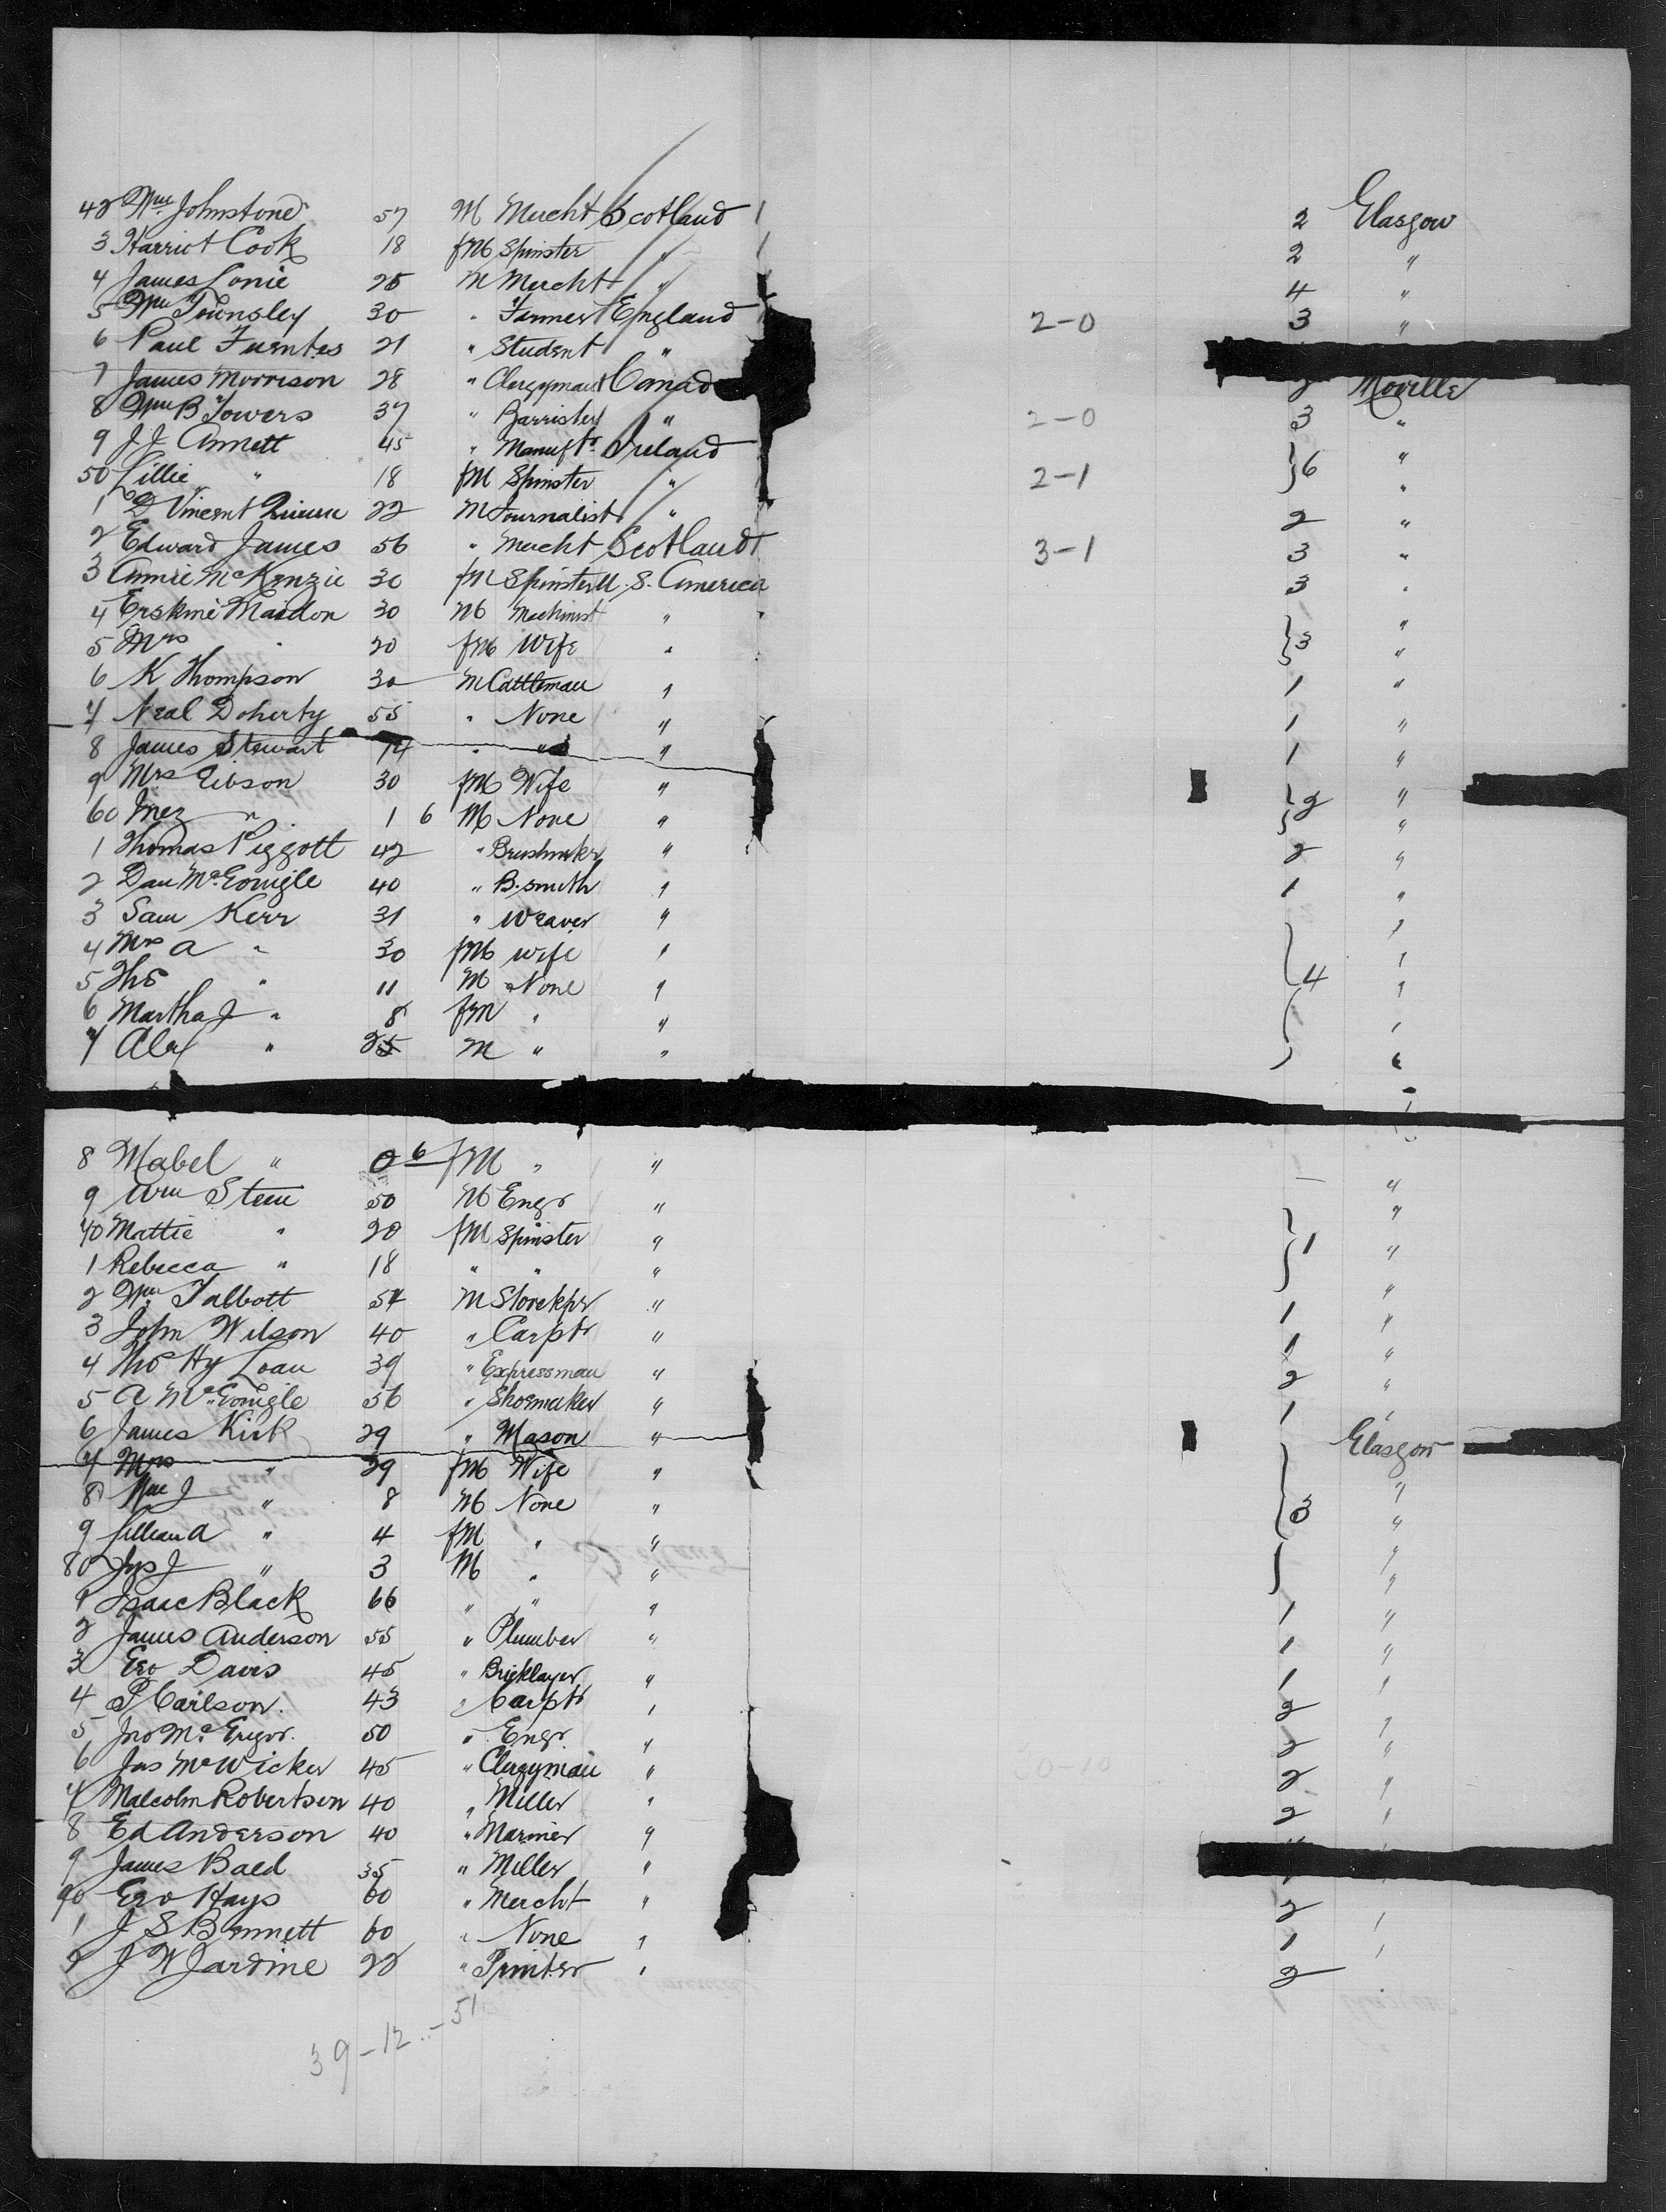 42 Wm Johnstone 57 M Mercht Scotland 1 2 Glasgow
3 Harriet Cook 18 fM Spinster " 1 2 "
4 James Lonie 25 M Mercht " 4 "
5 Wm Townsley 30 " Farmer England 2-0 3 "
6 Paul Fuentes 21 " Student "
7 James Morrison 28 " Clergyman Canad 2 Moville
8 Wm B Towers 37 " Barrister " 2-0 3 "
9 J J Annett 45 " Manuftr Ireland } 6 "
50 Lillie " 18 fM Spinster " 2-1 "
1 D Vincent 22 M Journalist " 2 "
2 Edward James 56 " Mercht Scotland 3-1 3 "
3 Annie McKenzie 30 fM Spinster U. S. America 3 "
4 Erskine Maidon 30 M Machinist " } 3 "
5 Mrs " 20 fM Wife " "
6 K Thompson 30 M Cattleman " 1 "
7 Neal Doherty 55 " None " 1 "
8 James Stewart 74 " " " 1 "
9 Mrs Gibson 30 fM Wife " } 2 "
60 Inez " 1 6 M None " "
1 Thomas Piggott 42 " Brushmkr " 2 "
2 Dan McGonigle 40 " B.smith " 1 "
3 Sam Kerr 31 " Weaver " "
4 Mrs A " 30 fM wife " "
5 Thos " 11 M None " } 4 "
6 Martha J " 8 fM " " "
7 Alex " M " " "
8 Mabel " 0 6 fM " " — "
9 Wm Stein 50 M Engr " "
70 Mattie " 20 fM Spinster " } 1 "
1 Rebecca " 18 " " " "
2 Wm Talbott 54 M Storekpr " 1 "
3 John Wilson 40 " Carptr " 1 "
4 Thos Hy Loan 39 " Expressman " 2 "
5 A McGonigle 56 " Shoemaker " 1 "
6 James Kirk 29 " Mason " Glasgow
7 Mrs " 29 fM Wife " "
8 Wm J " 8 M None " } 3 "
9 Lillian A " 4 fM " " "
80 Jas J " 3 M " " "
1 Isaac Black 66 " " " 1 "
2 James Anderson 55 " Plumber " 1 "
3 Geo Davis 45 " Bricklayer " 1 "
4 P Carlson. 43 " Carptr " 2
5 Jno McGregor. 50 " Engr. " 2 "
6 Jas McWicker 45 " Clergyman " 0-10 2 "
7 Malcolm Robertson 40 " Miller " 2 "
8 Ed Anderson 40 " Mariner "
9 James Baed 35 " Miller "
90 Geo Hays 60 " Mercht " 2 "
1 J S Bennett 60 " None " 1 "
2 J W Jardine 22 " Printer " 2
39-12-51